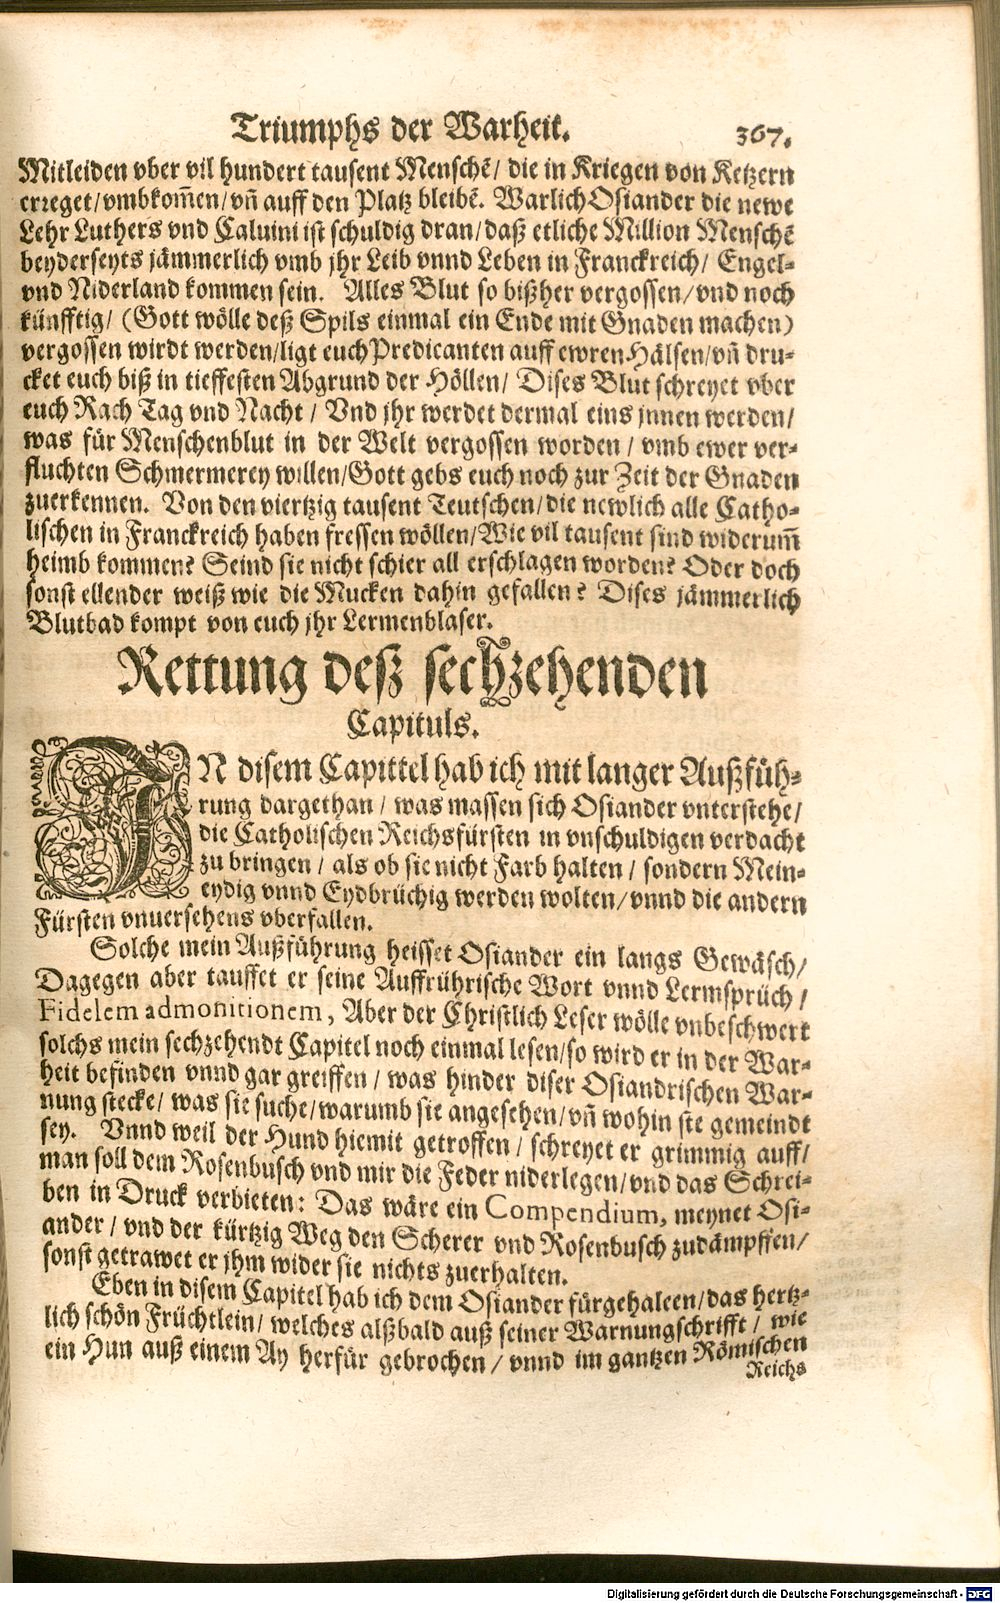 Triumphs der Warheit. 367.
Mitleiden vber vil hundert tausent Menschē/ die in Kriegen von Ketzern
erreget/vmbkom̃en/vñ auff den Platz bleibē. Warlich Osiander die newe
Lehr Luthers vnd Caluini ist schuldig dran/daß etliche Million Menschē
beyderseyts jämmerlich vmb jhr Leib vnnd Leben in Franckreich/ Engel-
vnd Niderland kommen sein. Alles Blut so bißher vergossen/vnd noch
künfftig/ (Gott wölle deß Spils einmal ein Ende mit Gnaden machen)
vergossen wirdt werden/ligt euch Predicanten auff ewren Hälsen/vñ dru-
cket euch biß in tieffesten Abgrund der Höllen/ Dises Blut schreyet vber
euch Rach Tag vnd Nacht / Vnd jhr werdet dermal eins jnnen werden/
was für Menschenblut in der Welt vergossen worden / vmb ewer ver-
fluchten Schmermerey willen/Gott gebs euch noch zur Zeit der Gnaden
zuerkennen. Von den viertzig tausent Teutschen/die newlich alle Catho-
lischen in Franckreich haben fressen wöllen/Wie vil tausent sind widerum̃
heimb kommen? Seind sie nicht schier all erschlagen worden? Oder doch
sonst ellender weiß wie die Mucken dahin gefallen? Dises jämmerlich
Blutbad kompt von euch jhr Lermenblaser.
Rettung deß sechzehenden
Capituls.
IN disem Capittel hab ich mit langer Außfüh-
rung dargethan / was massen sich Osiander vnterstehe/
die Catholischen Reichsfürsten in vnschuldigen verdacht
zu bringen / als ob sie nicht Farb halten / sondern Mein-
eydig vnnd Eydbrüchig werden wolten/vnnd die andern
Fürsten vnuersehens vberfallen.
Solche mein Außführung heisset Osiander ein langs Gewäsch/
Dagegen aber tauffet er seine Auffrührische Wort vnnd Lermsprüch /
Fidelem admonitionem, Aber der Christlich Leser wölle vnbeschwert
solchs mein sechzehendt Capitel noch einmal lesen/so wird er in der War-
heit befinden vnnd gar greiffen / was hinder diser Osiandrischen War-
nung stecke/ was sie suche/warumb sie angesehen/vñ wohin ste gemeindt
sey. Vnnd weil der Hund hiemit getroffen / schreyet er grimmig auff/
man soll dem Rosenbusch vnd mir die Feder niderlegen/vnd das Schrei-
ben in Druck verbieten: Das wäre ein Compendium, meynet Osi-
ander / vnd der kürtzig Weg den Scherer vnd Rosenbusch zudämpffen/
sonst getrawet er jhm wider sie nichts zuerhalten.
Eben in disem Capitel hab ich dem Osiander fürgehaleen/das hertz-
lich schön Früchtlein/ welches alßbald auß seiner Warnungschrifft / wie
ein Hun auß einem Ay herfür gebrochen / vnnd im gantzen Römischen
Reichs
Digitalisierung gefördert durch die Deutsche Forschungsgemeinschaft - DFG